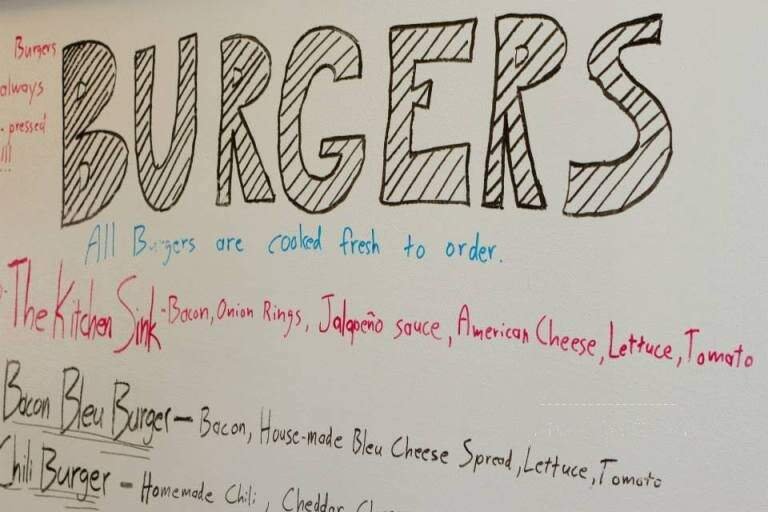 BURGERS
Burgers
always
pressed
!!!
All Burgers are cooked fresh to order.
The Kitchen Sink - Bacon, Onion Rings, Jalapeño sauce, American Cheese, Lettuce, Tomato
Bacon Bleu Burger - Bacon, House-made Bleu Cheese Spread, Lettuce, Tomato
Chili Burger - Homemade Chili, Cheddar